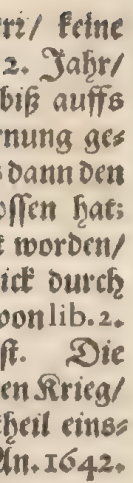 ri/ keine
2. Jahr/
biß auffs
rnung ges
s dann den
ossen hat;
t worden/
ick durch
oon lib. 2.
st. Die
en Krieg/
heil eins⸗
An. 1642.